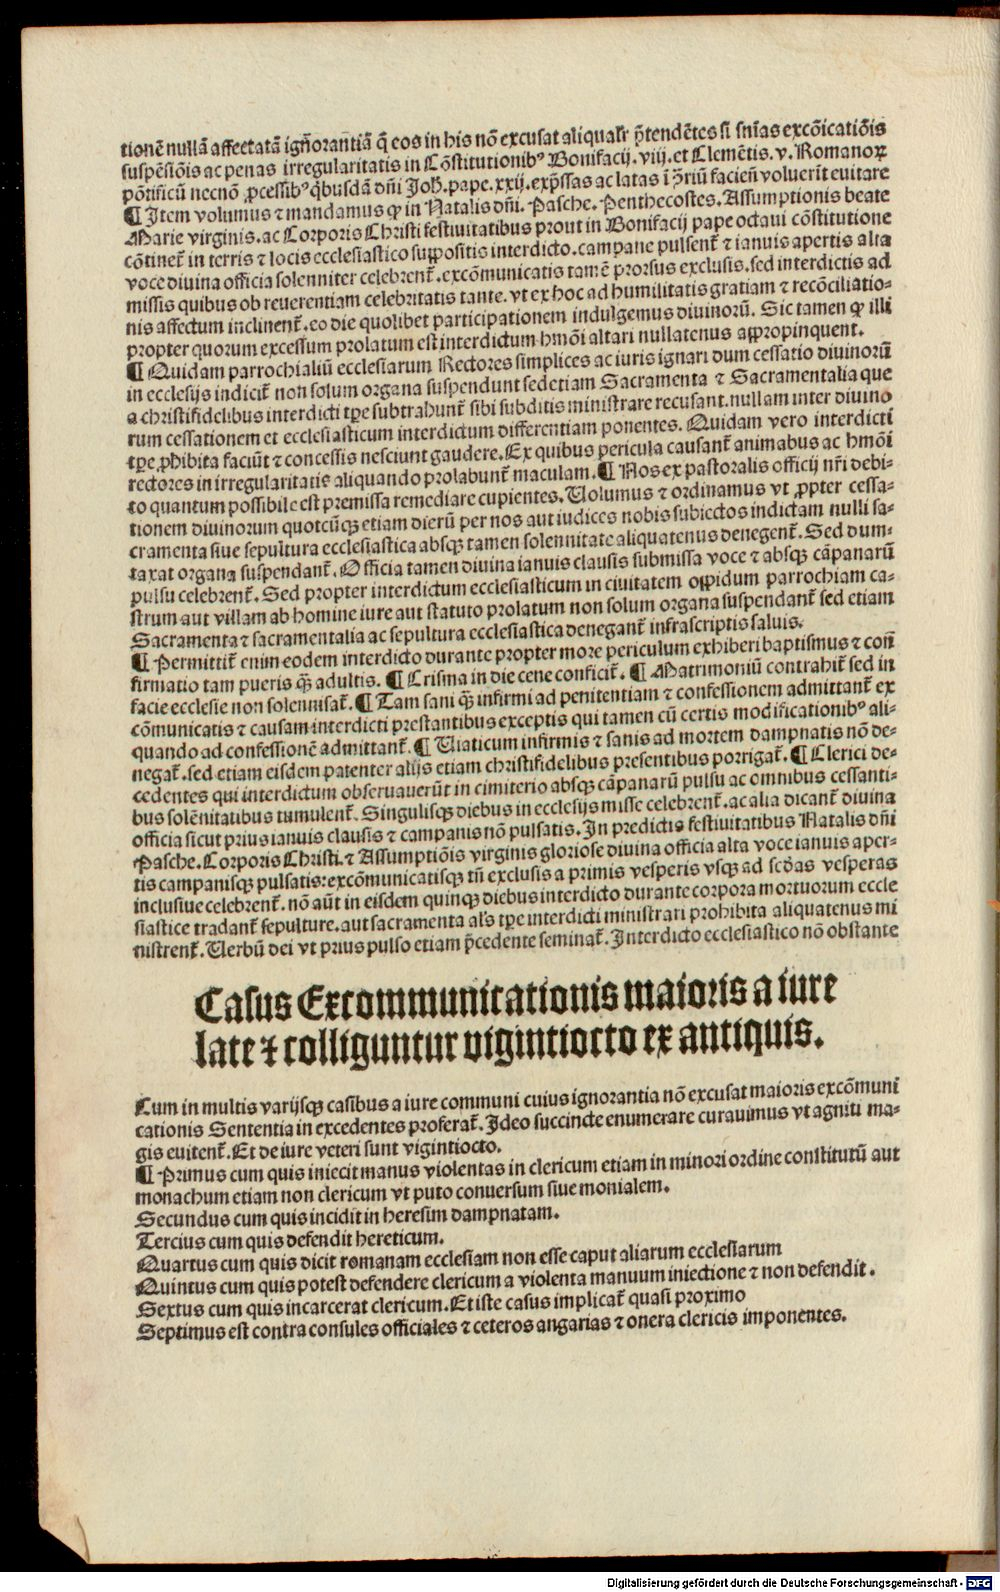 tionē nullā affectatā igñorantiā q̄ eos in his nō excusat aliqualr̄ p̄tendētes si snīas excōicatiōis
suspēsiōis ac penas irregularitatis in Cōstitutionibꝰ Bonifacij. viij. et Clemētis. v. Romanoꝝ
pōtificū necnō ꝓcessibꝰ q̄busdā dñi Joh̄. pape. xxij. exp̄ssas ac latas ī ꝯ̄riū facieñ voluerīt euitare
¶ Item volumus ⁊ mandamus ꝙ in Natalis dñi. Pasche. Penthecostes. Assumptionis beate
Marie virginis. ac Corporis Christi festiuitatibus prout in Bonifacij pape octaui cōstitutione
cōtinet̄ in terris ⁊ locis ecclesiastico suppositis interdicto. campane pulsent̄ ⁊ ianuis apertis alta
voce diuina officia solenniter celebrent̄. excōmunicatis tamē prorsus exclusis. sed interdictis ad
missis quibus ob reuerentiam celebritatis tante. vt ex hoc ad humilitatis gratiam ⁊ recōciliatio⸗
nis affectum inclinent̄. eo die quolibet participationem indulgemus diuinorū. Sic tamen ꝙ illi
propter quorum excessum prolatum est interdictum hmōi altari nullatenus appropinquent.
¶ Quidam parrochialiū ecclesiarum Rectores simplices ac iuris ignari dum cessatio diuinorū
in ecclesijs indicit̄ non solum organa suspendunt sedetiam Sacramenta ⁊ Sacramentalia que
a christifidelibus interdicti tp̄e subtrahunt̄ sibi subditis ministrare recusant. nullam inter diuino
rum cessationem et ecclesiasticum interdictum differentiam ponentes. Quidam vero interdicti
tp̄e ꝓhibita faciūt ⁊ concessis nesciunt gaudere. Ex quibus pericula causant̄ animabus ac hmōi
rectores in irregularitatis aliquando prolabunt̄ maculam. ¶ Nos ex pastoralis officij nr̄i debi⸗
to quantum possibile est premissa remediare cupientes. Uolumus ⁊ ordinamus vt ꝓpter cessa⸗
tionem diuinorum quotcūqꝫ etiam dierū per nos aut iudices nobis subiectos indictam nulli sa⸗
cramenta siue sepultura ecclesiastica absqꝫ tamen solennitate aliquatenus denegent̄. Sed dum⸗
taxat organa suspendant̄. Officia tamen diuina ianuis clausis submissa voce ⁊ absqꝫ cāpanarū
pulsu celebrent̄. Sed propter interdictum ecclesiasticum in ciuitatem oppidum parrochiam ca⸗
strum aut villam ab homine iure aut statuto prolatum non solum organa suspendant̄ sed etiam
Sacramenta ⁊ sacramentalia ac sepultura ecclesiastica denegant̄ infrascriptis saluis.
¶ Permittit̄ enim eodem interdicto durante propter more periculum exhiberi baptismus ⁊ coñ
firmatio tam pueris qꝫ̄ adultis. ¶ Crisma in die cene conficit̄. ¶ Matrimoniū contrahit̄ sed in
facie ecclesie non solennisat̄. ¶ Tam sani qꝫ̄ infirmi ad penitentiam ⁊ confessionem admittant̄ ex
cōmunicatis ⁊ causam interdicti prestantibus exceptis qui tamen cū certis modificationibꝰ ali⸗
quando ad confessionē admittant̄. ¶ Uiaticum infirmis ⁊ sanis ad mortem dampnatis nō de⸗
negat̄. sed etiam eisdem patenter alijs etiam christifidelibus presentibus porrigat̄. ¶ Clerici de⸗
cedentes qui interdictum obseruauerūt in cimiterio absqꝫ cāpanarū pulsu ac omnibus cessanti⸗
bus solēnitatibus tumulent̄. Singulisqꝫ diebus in ecclesijs misse celebrent̄. ac alia dicant̄ diuina
officia sicut prius ianuis clausis ⁊ campanis nō pulsatis. In predictis festiuitatibus Natalis dñi
Pasche. Corporis Christi. ⁊ Assumptiōis virginis gloriose diuina officia alta voce ianuis aper⸗
tis campanisqꝫ pulsatis: excōmunicatisqꝫ tn̄ exclusis a primis vesperis vsqꝫ ad scd̄as vesperas
inclusiue celebrent̄. nō aūt in eisdem quinqꝫ diebus interdicto durante corpora mortuorum eccle
siastice tradant̄ sepulture. aut sacramenta als̄ tp̄e interdicti ministrari prohibita aliquatenus mi
nistrent̄. Uerbū dei vt prius pulso etiam p̄cedente seminat̄. Interdicto ecclesiastico nō obstante
Casus Excommunicationis maioris a iure
late ⁊ colliguntur vigintiocto ex antiquis.
Cum in multis varijsqꝫ casibus a iure communi cuius ignorantia nō excusat maioris excōmuni
cationis Sententia in excedentes proferat̄. Ideo succincte enumerare curauimus vt agniti ma⸗
gis euitent̄. Et de iure veteri sunt vigintiocto.
¶ Primus cum quis iniecit manus violentas in clericum etiam in minori ordine constitutū aut
monachum etiam non clericum vt puto conuersum siue monialem.
Secundus cum quis incidit in heresim dampnatam.
Tercius cum quis defendit hereticum.
Quartus cum quis dicit romanam ecclesiam non esse caput aliarum ecclesiarum
Quintus cum quis potest defendere clericum a violenta manuum iniectione ⁊ non defendit.
Sextus cum quis incarcerat clericum. Et iste casus implicat̄ quasi proximo
Septimus est contra consules officiales ⁊ ceteros angarias ⁊ onera clericis imponentes.
Digitalisierung gefördert durch die Deutsche Forschungsgemeinschaft - DFG